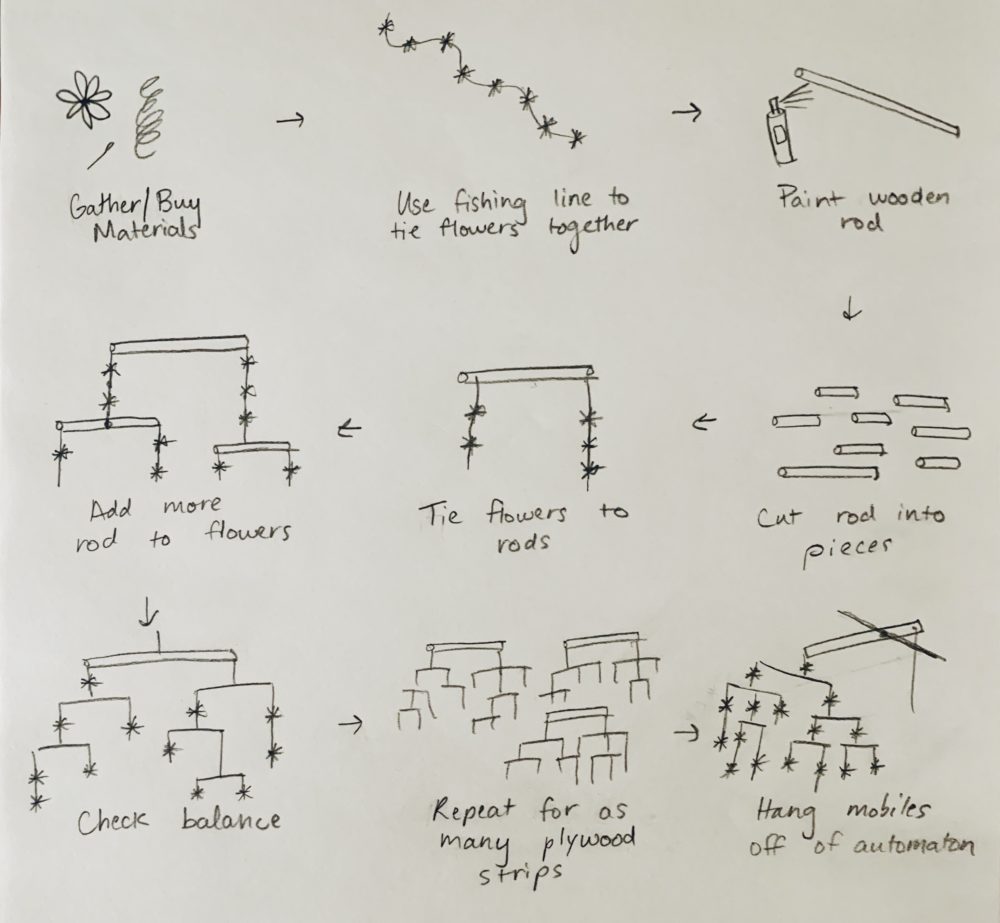 Gather/Buy
Materials
Use fishing line to
tie flowers together
Paint wooden
rod
Cut rod into
pieces
Tie flowers to
rods
Add more
rod to flowers
Check balance
Repeat for as
many plywood
strips
Hang mobiles
off of automaton